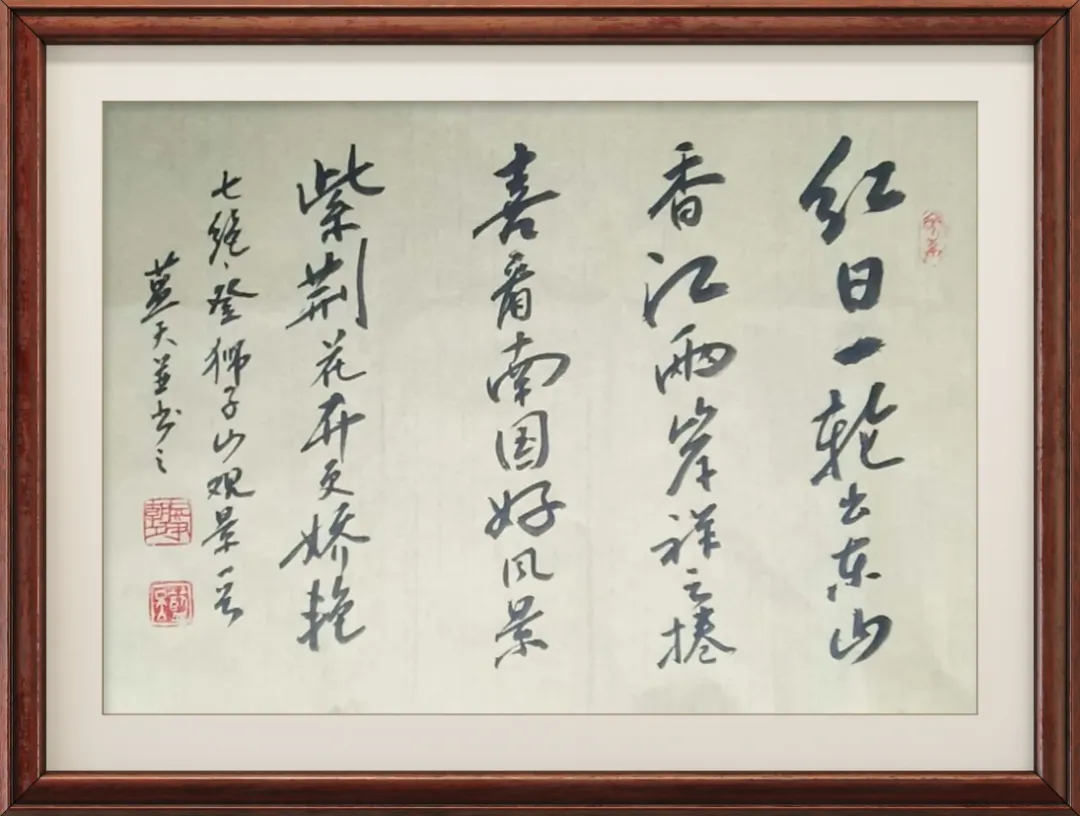 红日一轮出东山
香江两岸祥云捲
喜看南国好风景
紫荆花开更娇艳
七绝、登狮子山观景一首
蓝天並书之